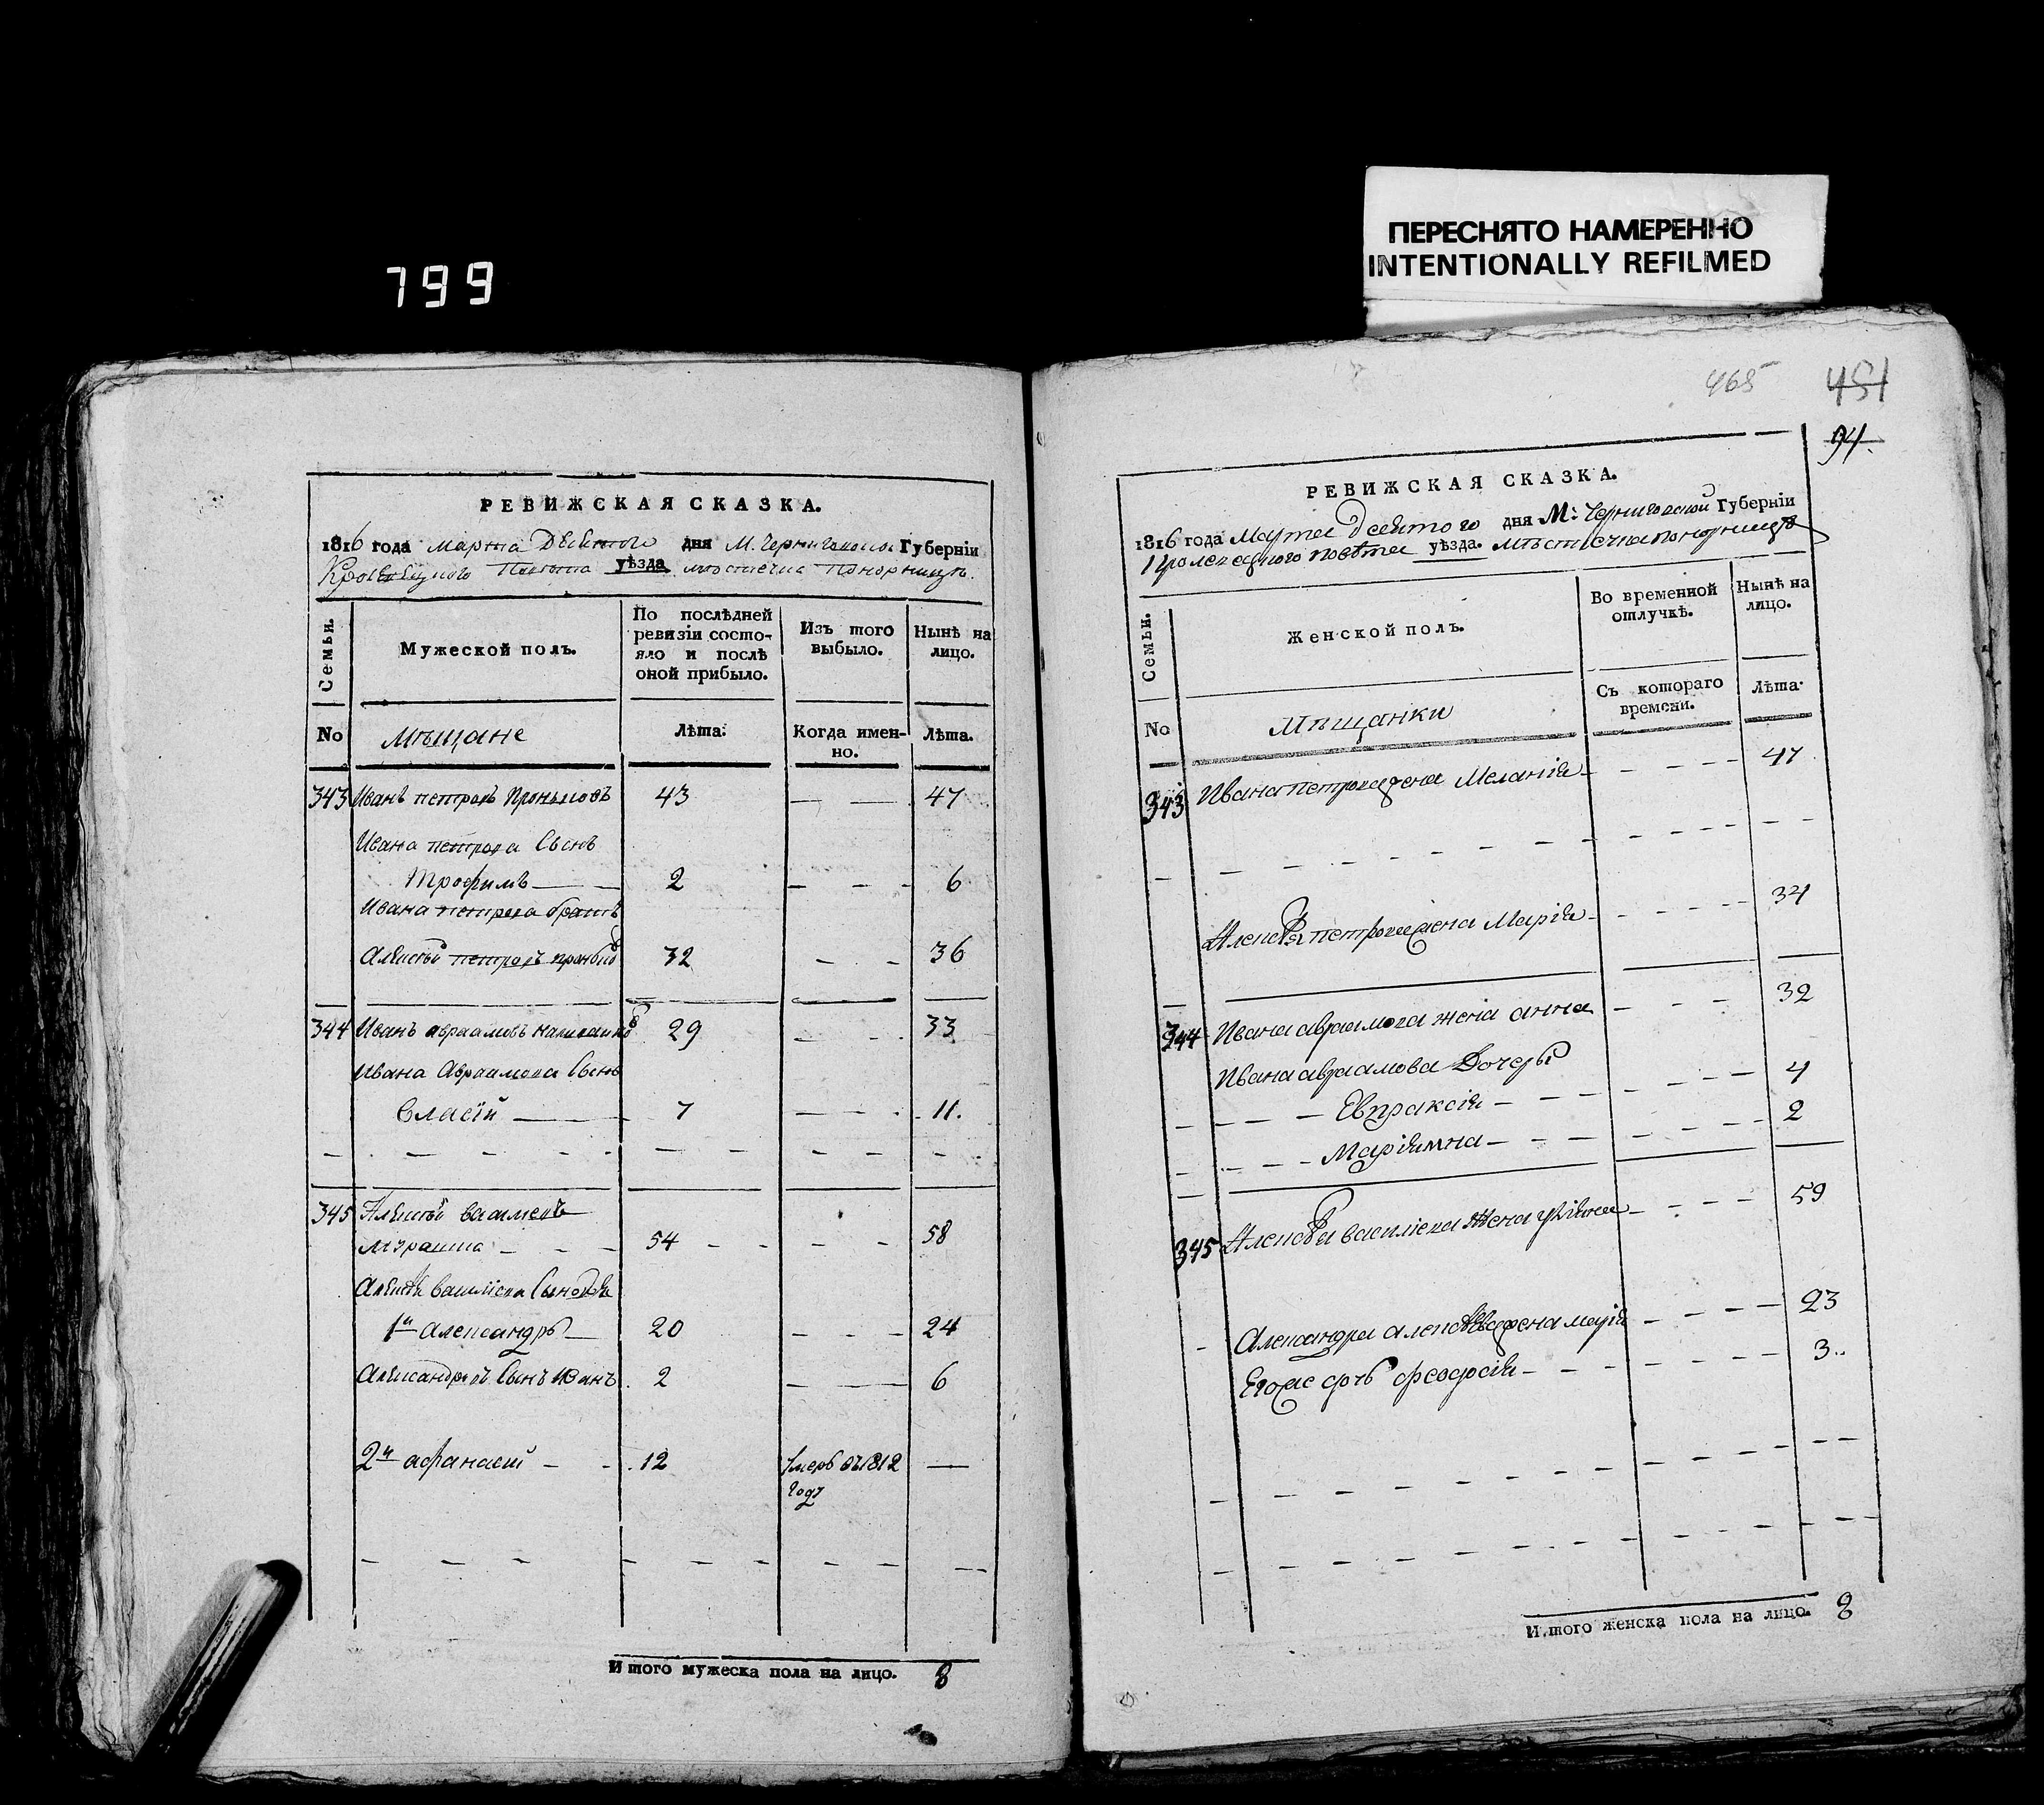 799
ПЕРЕСНЯТО НАМЕРЕННО
INTENTIONALLY REFILMED
РЕВИЖСКАЯ СКАЗКА.
1816 года марта девятого дня М. Черниговской Губерніи
Кролевецкого Повѣта уѣзда мѣстечка Понорницѣ.
Семьи.
Мужеской полъ.
По послѣдней
ревизіи состо-
яло и послѣ
оной прибыло.
Изъ того
выбыло.
Нынѣ на
лицо.
No
мѣщане
Лѣта.
Когда имен-
но.
Лѣта.
343 Иванъ петровъ 43 — — 47
Ивана петрова Сынъ
трофимъ — — 2 — — - 6
Ивана петрова братъ
Алексѣй петровъ 32 — - 36
344 Иванъ авраамовъ 29 — - 33
Ивана Авраамова Сынъ
Власій — — 7 — — - 11.
345 Алексѣй васильевъ
54 - - — — 58
Алексѣя василіева Сыновья
1й александръ — 20 — — — 24
Александровъ Сынъ Иванъ 2 — — 6
2й афанасий — - 12 умеръ въ 1812 —
году
Итого мужеска пола на лицо. 8
465 451
94.
РЕВИЖСКАЯ СКАЗКА.
1816 года Марта девятого дня М: Черниговской Губерніи
Кролевецкого повѣта уѣзда. мѣстечка понорницѣ
Семьи.
Женской полъ.
Во временной
отлучкѣ.
Нынѣ на
лицо.
No
Мѣщанки
Съ котораго
времени.
Лѣта.
343 Ивана петрова жена Меланія — — — — 47
Алексѣя петрова жена Марія — — — — 34
344 Ивана авраамова жена анна — — — 32
Ивана авраамова Дочери
— — — Евпраксія — — — — 4
— — — Маріямна — — — — 2
345 Алексѣя василіева жена уліяна — — — 59
Александра алексѣева жена марія — — — 23
Его же дочь феодосія — — — — 3..
Итого женска пола на лицо. 8